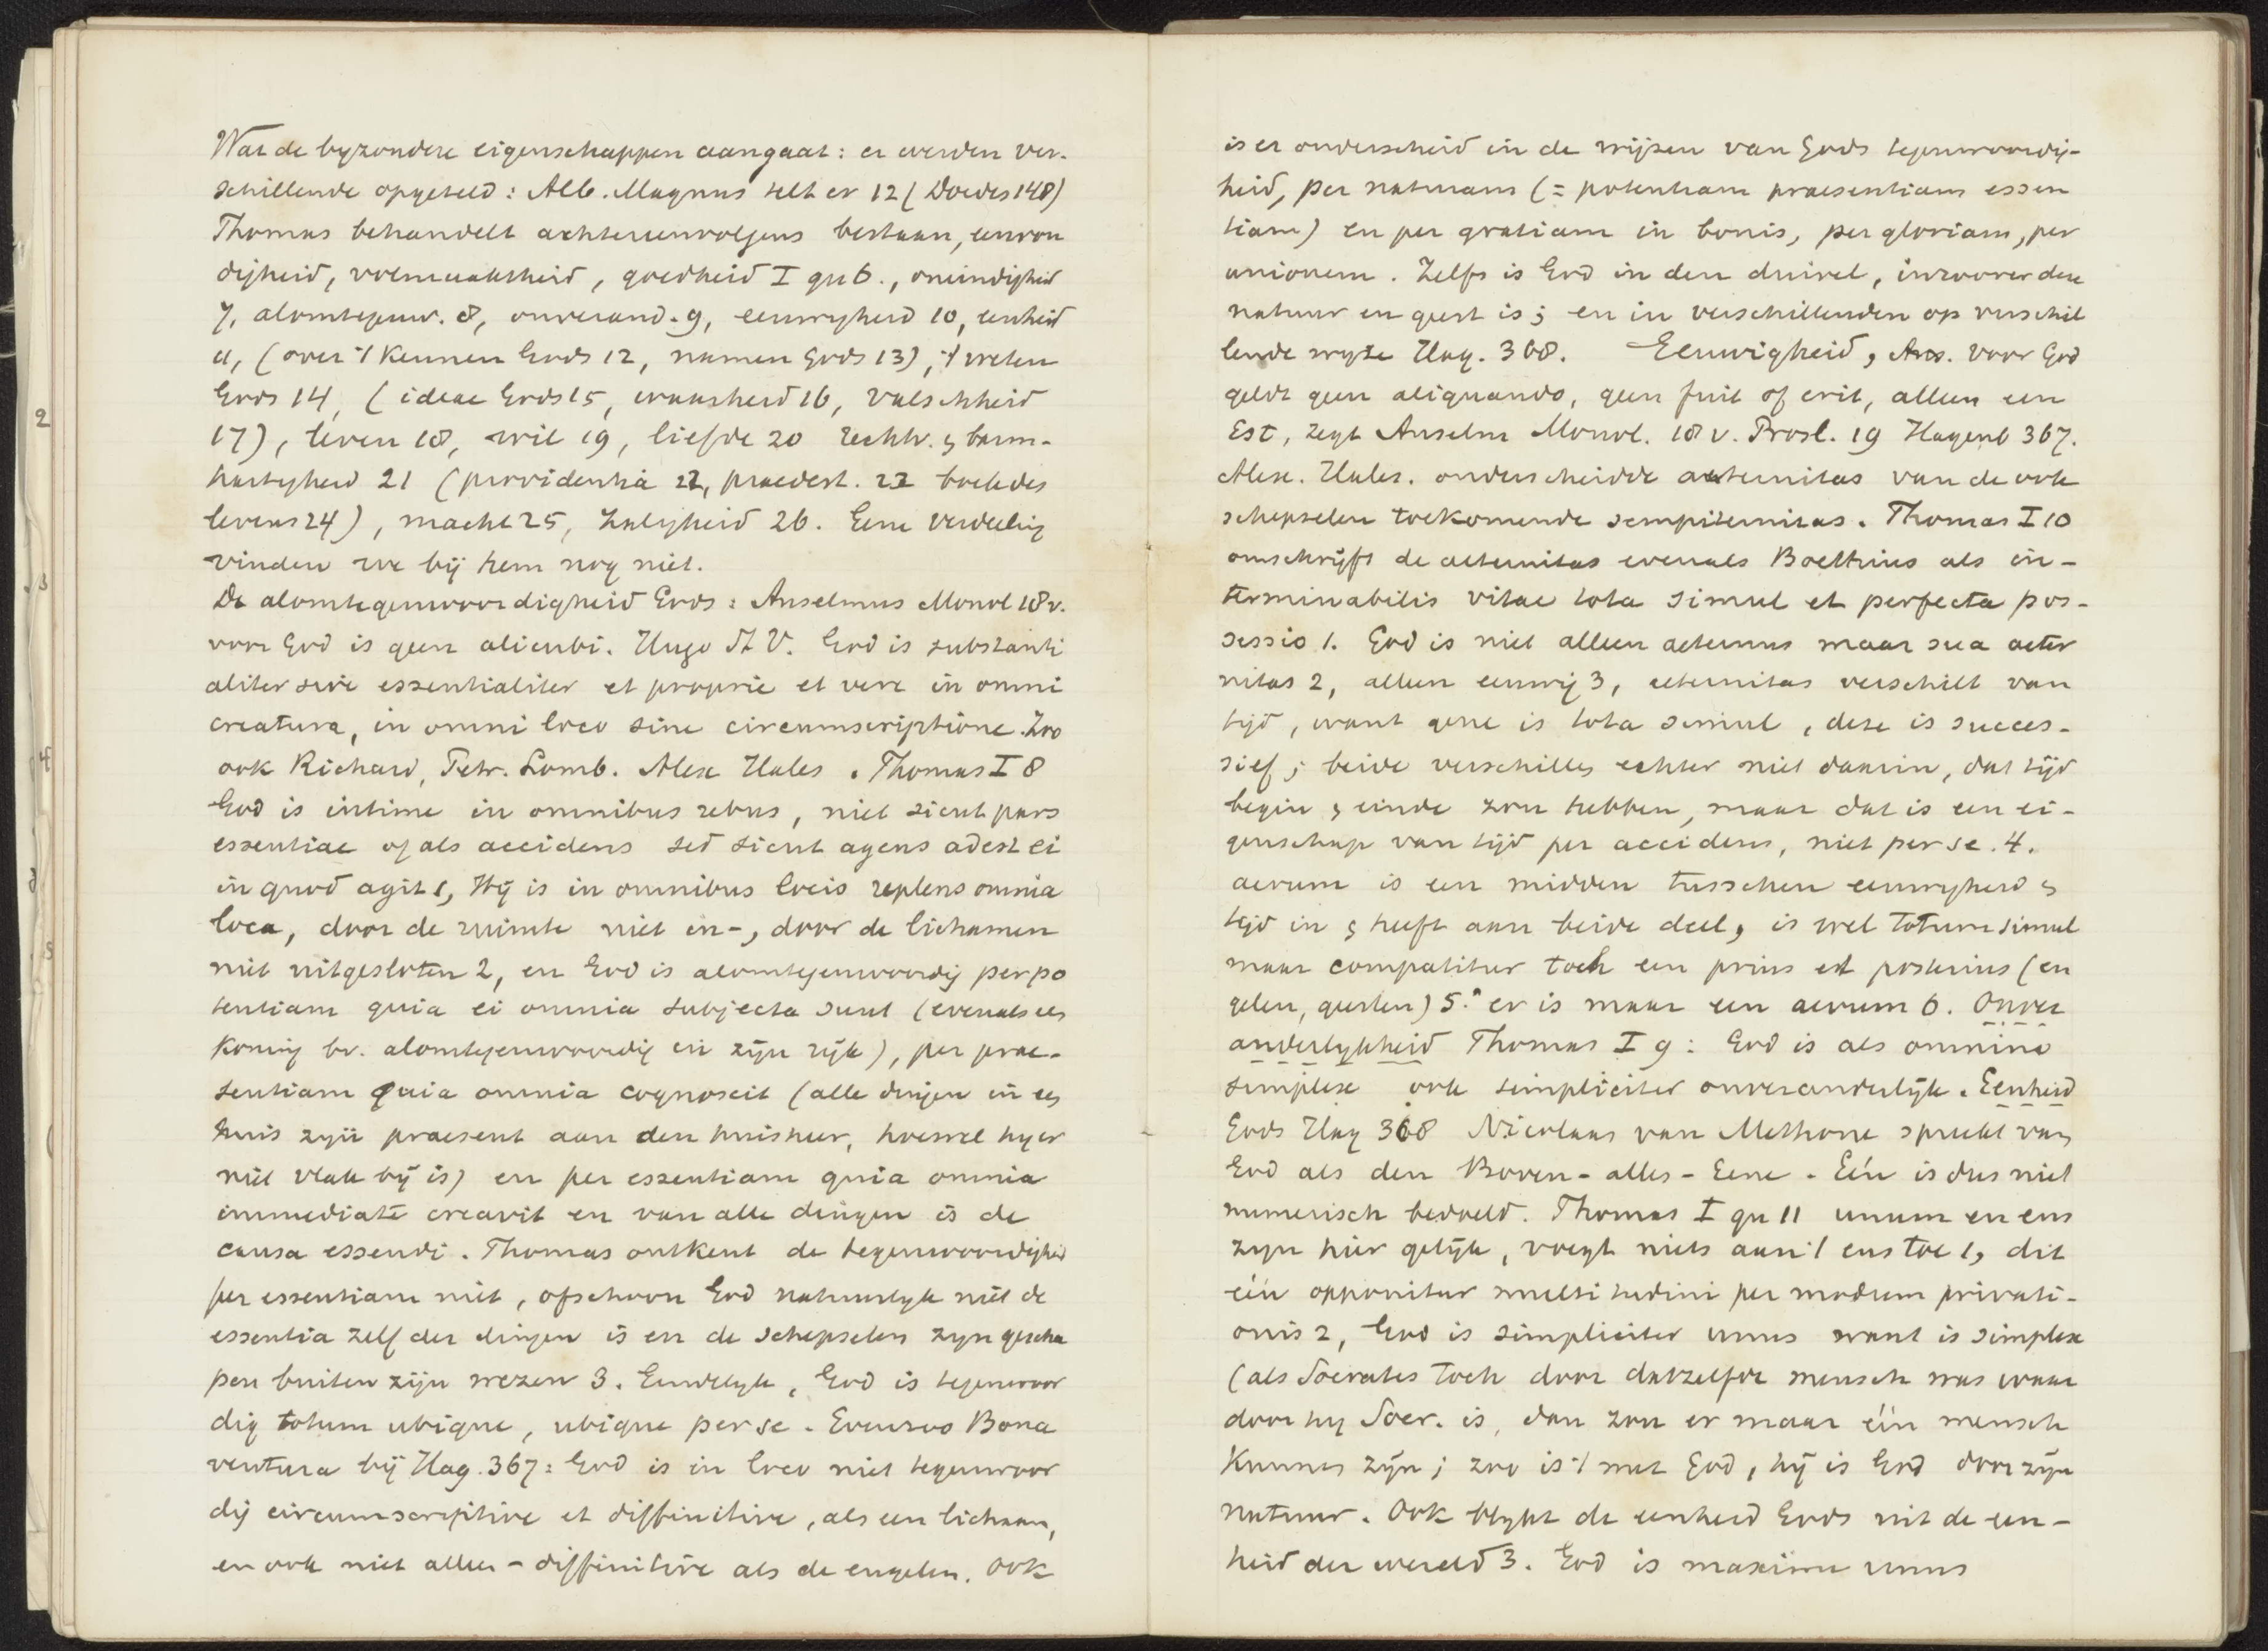 Wat de byzondere eigenschappen aangaat: er werden ver-
schillende opgeteld: Alb. Magnus telt er 12 (Doedes 148)
Thomas behandelt achtereenvolgens bestaan, eenvou
digheid, volmaaktheid, goedheid I qu 6., oneindigheid
7, alomtegenw. 8, onverand. 9, eeuwigheid 10, eenheid
11, (over 't kennen Gods 12, namen Gods 13), 't weten
Gods 14, (ideae Gods 15, waarheid 16, valschheid
17), leven 18, wil 19, liefde 20 rechtv. & barm-
hartigheid 21 (providentia 22, praedest. 23 boek des
levens 24), macht 25, zaligheid 26. Eene verdeeling
vinden we bij hem nog niet.
De alomtegenwoordigheid Gods: Anselmus Monol 18 v.
voor God is geen alicubi. Hugo St V. God is substanti
aliter sive essentialiter et proprie et vere in omni
creatura, in omni loco sine circumscriptione. Zoo
ook Richard, Petr. Lomb. Alex Hales. Thomas I 8
God is intime in omnibus rebus, niet sicut pars
essentiae of als accidens sed sicut agens adest ei
in quod agit 1, Hij is in omnibus locis replens omnia
loca, door de ruimte niet in-, door de lichamen
niet uitgesloten 2, en God is alomtegenwoordig per po
tentiam quia ei omnia subjecta sunt (evenals een
koning bv. alomtegenwoordig in zijn rijk), per prae-
sentiam quia omnia cognoscit (alle dingen in een
huis zijn praesent aan den huisheer, hoewel hij er
niet vlak bij is) en per essentiam quia omnia
immediate creavit en van alle dingen is de
causa essendi. Thomas ontkent de tegenwoordigheid
per essentiam niet, ofschoon God natuurlyk niet de
essentia zelf der dingen is en de schepselen zyn gescha
pen buiten zijn wezen 3. Eindelyk, God is tegenwoor
dig totum ubique, ubique per se. Evenzoo Bona
ventura bij Hag. 367: God is in loco niet tegenwoor
dig circumscriptive et diffinitive, als een lichaam,
en ook niet alleen - diffinitive als de engelen. Ook
is er onderscheid in de wijzen van Gods tegenwoordig-
heid, per naturam (= potentiam praesentiam essen
tiam) en per gratiam in bonis, per gloriam, per
unionem. Zelfs is God in den duivel, inzoover deze
natuur en geest is; en in verschillenden op verschil
lende wyze Hag. 368. Eeuwigheid, Ans. Voor God
geldt geen aliquando, geen fuit of erit, alleen een
Est, zegt Anselm Monol. 18 v. Prosl. 19 Hagenb 367.
Alex. Hales. onderscheidde aeternitas van de ook
schepselen toekomende sempiternitas. Thomas I 10
omschrijft de aeternitas evenals Boethius als in-
terminabilis vitae tota simul et perfecta pos-
sessio 1. God is niet alleen aeternus maar sua aeter
nitas 2, alleen eeuwig 3, aeternitas verschilt van
tijd, want gene is tota simul, deze is succes-
sief; beide verschillen echter niet daarin, dat tijd
begin & einde zou hebben, maar dat is een ei-
genschap van tijd per accidens, niet per se. 4.
aevum is een midden tusschen eeuwigheid &
tijd in & heeft aan beide deel, is wel totum simul
maar compatitur toch een prius et posterius (en
gelen, geesten) 5. er is maar een aevum 6. Onver
anderlykheid Thomas I 9: God is als omnino
simplex ook simpliciter onveranderlijk. Eenheid
Gods Hag 368 Nicolaas van Methone spreekt van
God als den Boven-alles-Eene. Eén is dus niet
numerisch bedoeld. Thomas I qu 11 unum en ens
zyn hier gelijk, voegt niets aan 't ens toe 1, dit
één opponitur multitudini per modum privati-
onis 2, God is simpliciter unus want is simplex
(als Socrates toch door datzelfde mensch was waar
door hy Socr. is, dan zou er maar één mensch
kunnen zijn; zoo is 't met God, hij is God door zijn
natuur. Ook blykt de eenheid Gods uit de een-
heid der wereld 3. God is maxime unus